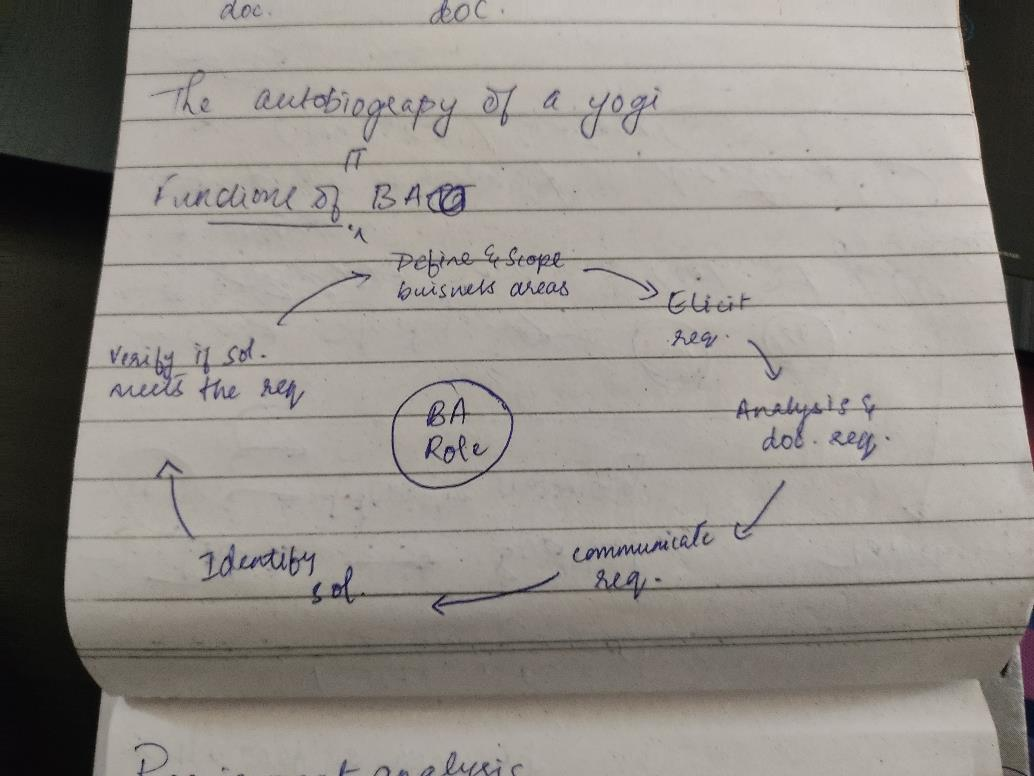 doc. doc.
The autobiograpy of a yogi
IT
Functions of BA
Define & Scope
buisness areas
Elicit
req.
Analysis &
doc. req.
communicate
req.
Identify
sol.
Verify if sol.
meets the req
BA
Role
analysis